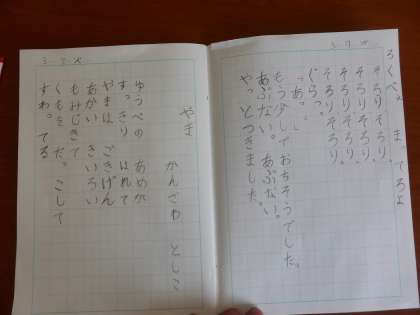 ろくべえ まってろよ
そろり そろり。
そろり そろり。
そろり そろり。
そろり そろり。
ぐらっ。
「あっ。」
もう少しで おちそうでした。
あぶない。 あぶない。
やっと つきました。
やま
かんざわ としこ
ゆうべの あめが
すっきり はれて
やまは ごきげん
あかい きいろい
もみじきて
くもを だっこして
すわってる